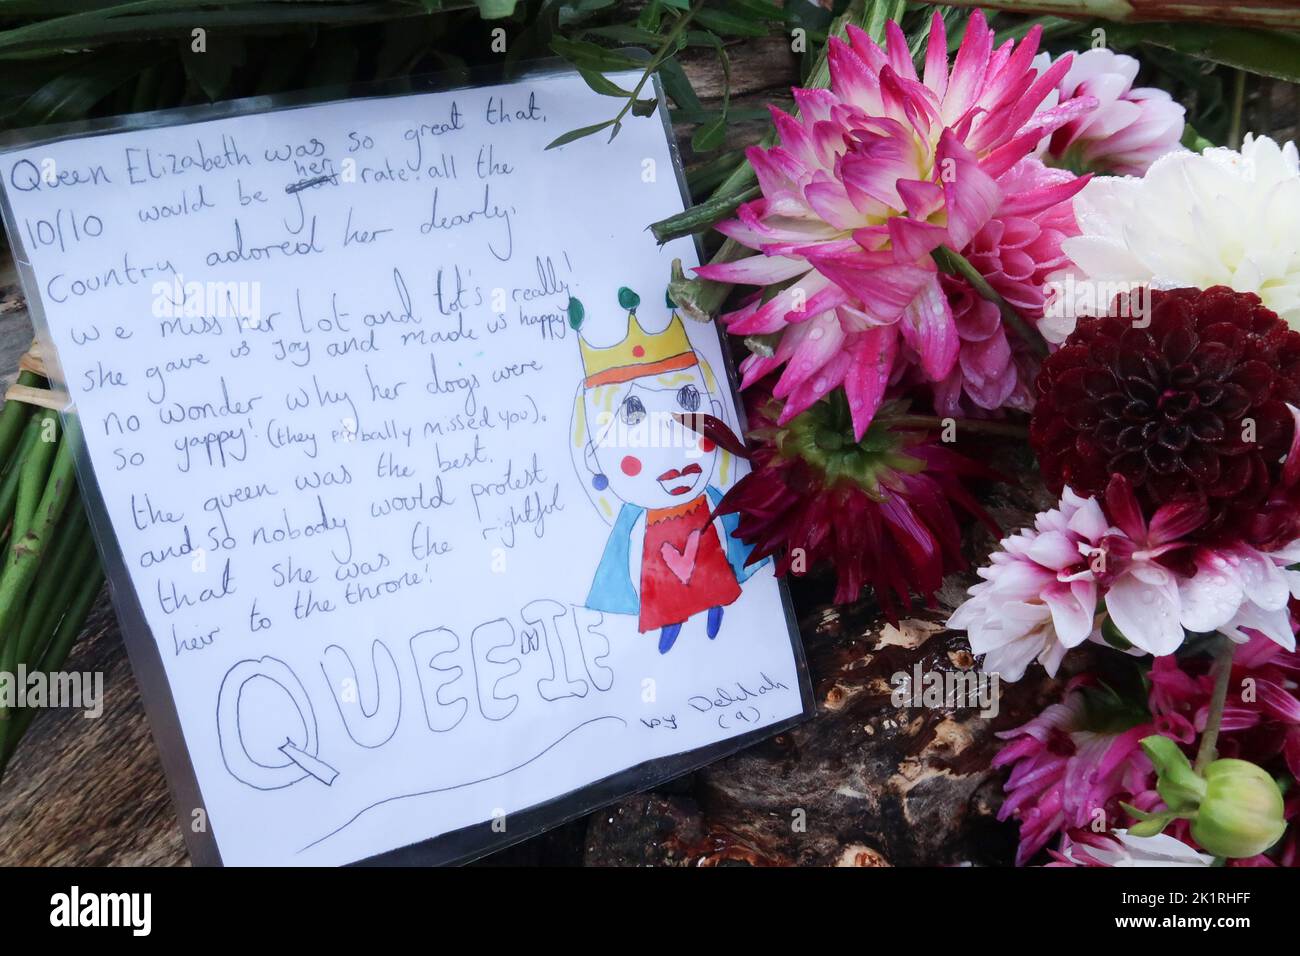 Queen Elizabeth was so great that,
10/10 would be her rate. all the
country adored her dearly,
we miss her lot and lot's really!
she gave us joy and made us happy
no wonder why her dogs were
so yappy! (they probally missed you).
the queen was the best.
and so nobody would protest
that she was the rightful
heir to the throne!
QUEENIE
by Delilah
(9).
alamy
Image ID: 2K1RHFF
www.alamy.com